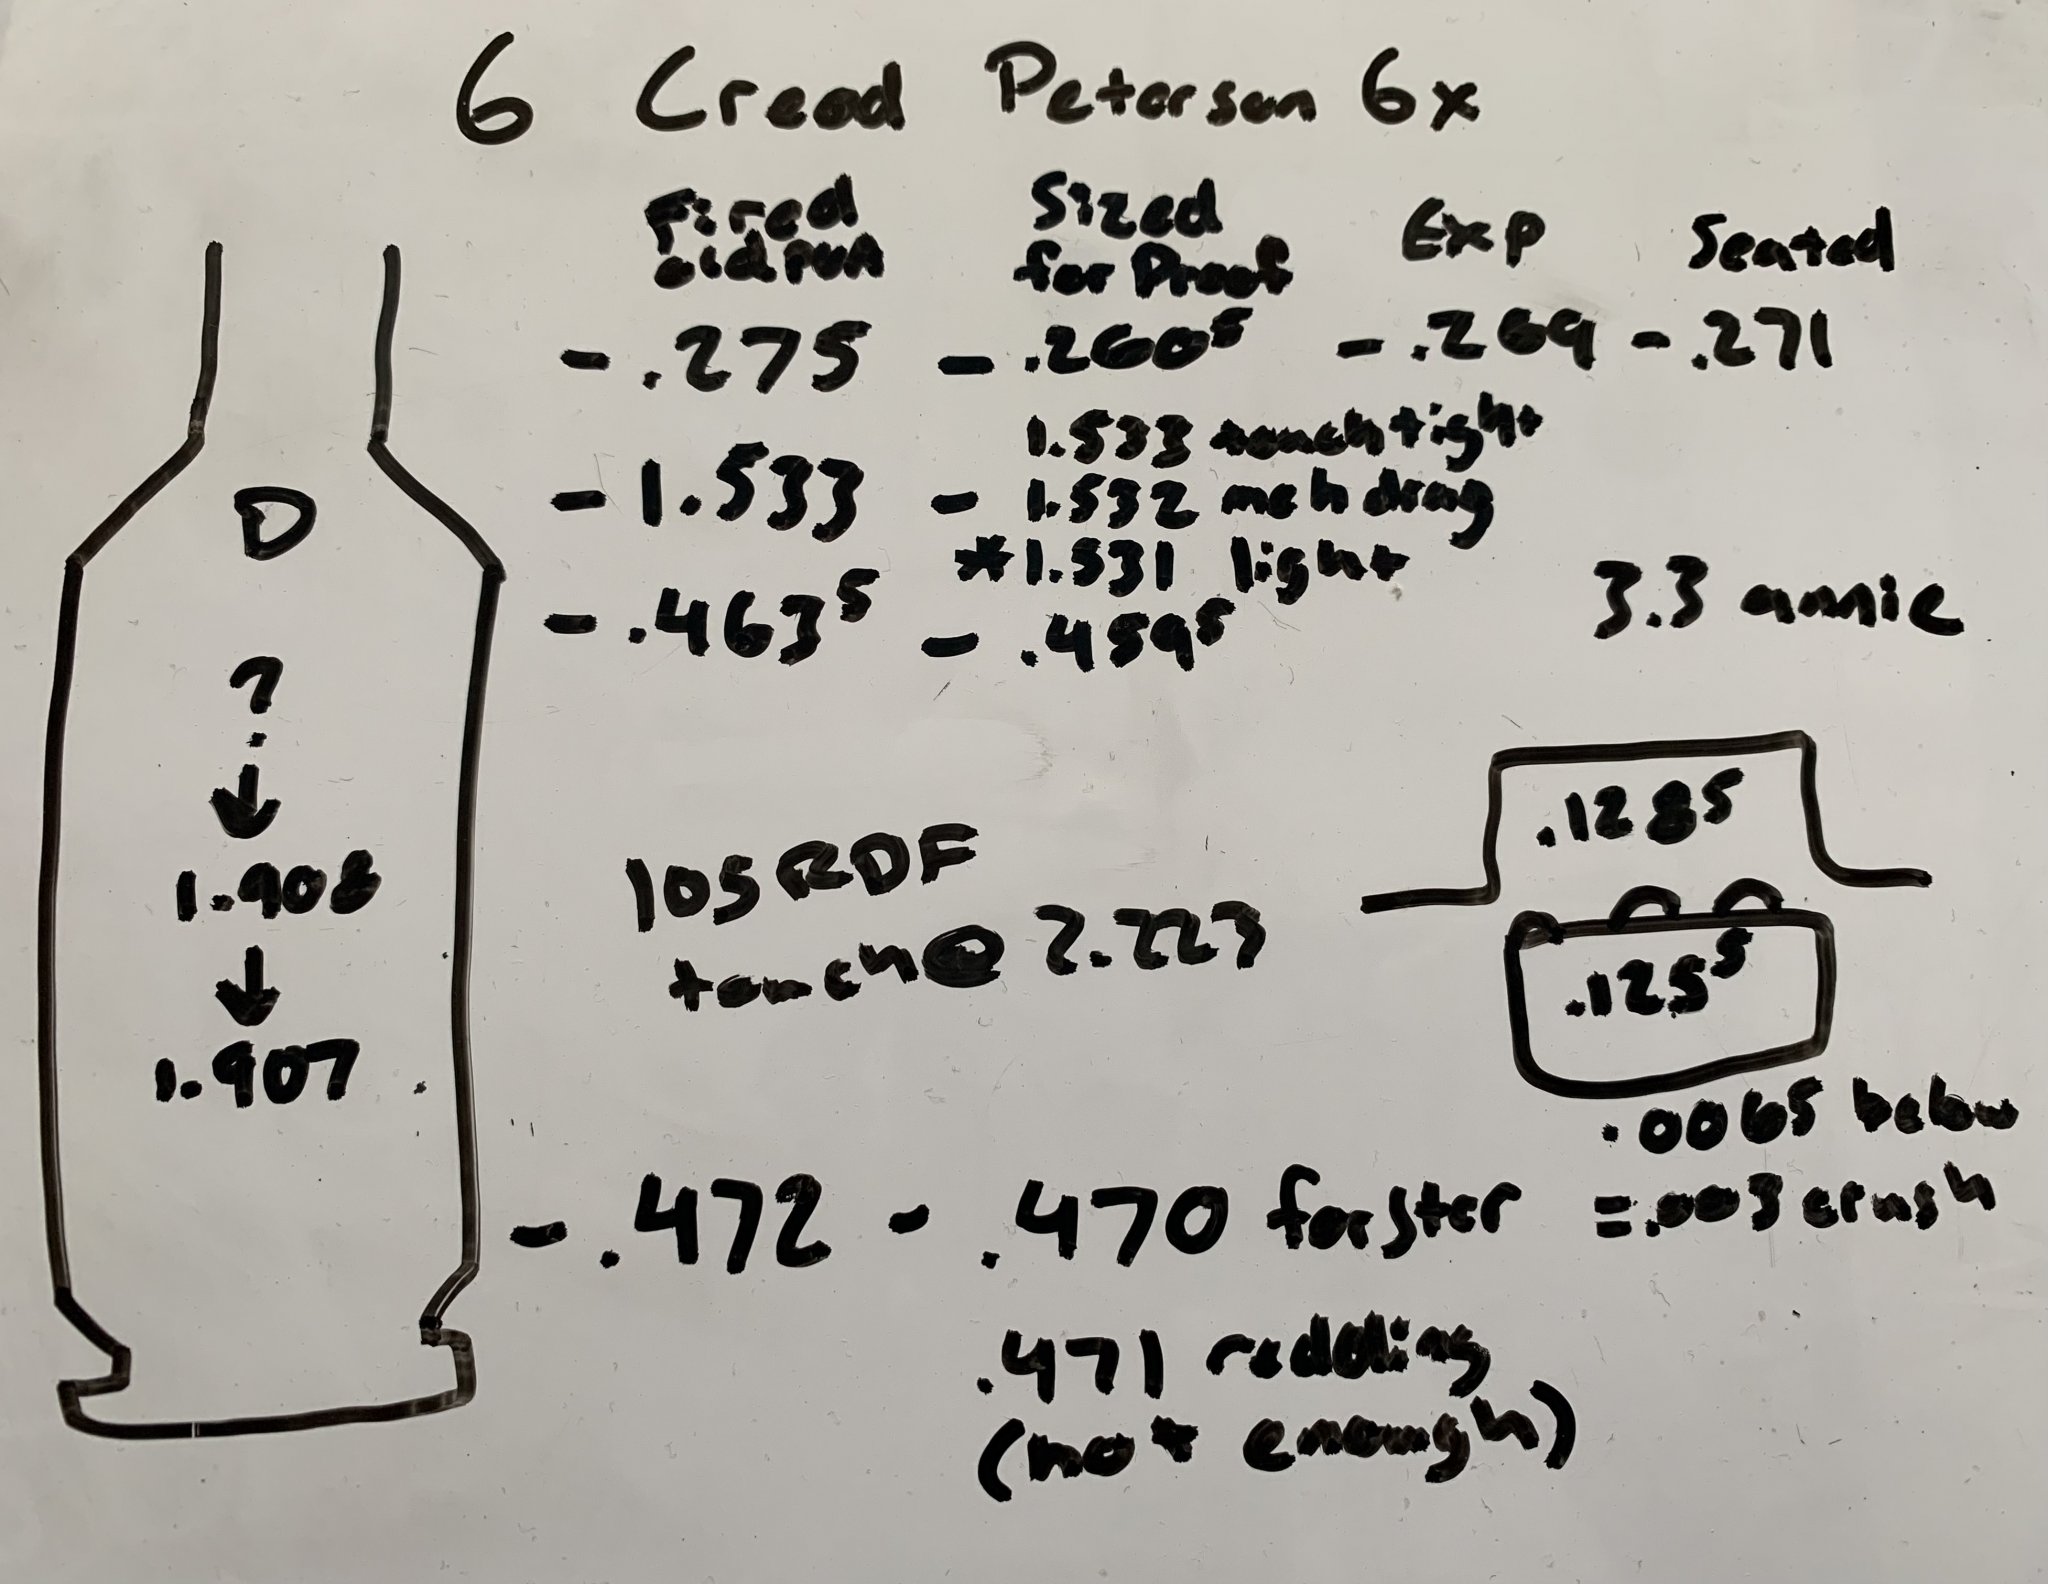 6 Creed Peterson 6x
Fired
old PVA
Sized
for Proof
Exp
Seated
- .275
- .260⁵
- .269
- .271
1.533 touch tight
- 1.533
- 1.532 meh drag
*1.531 light
- .463⁵
- .459⁵
3.3 annie
D
?
1.908
1.907
105 RDF
touch @ 2.223
.1285
.125⁵
.0065 below
= .003 crush
- .472
- .470 forster
.471 redding
(not enough)